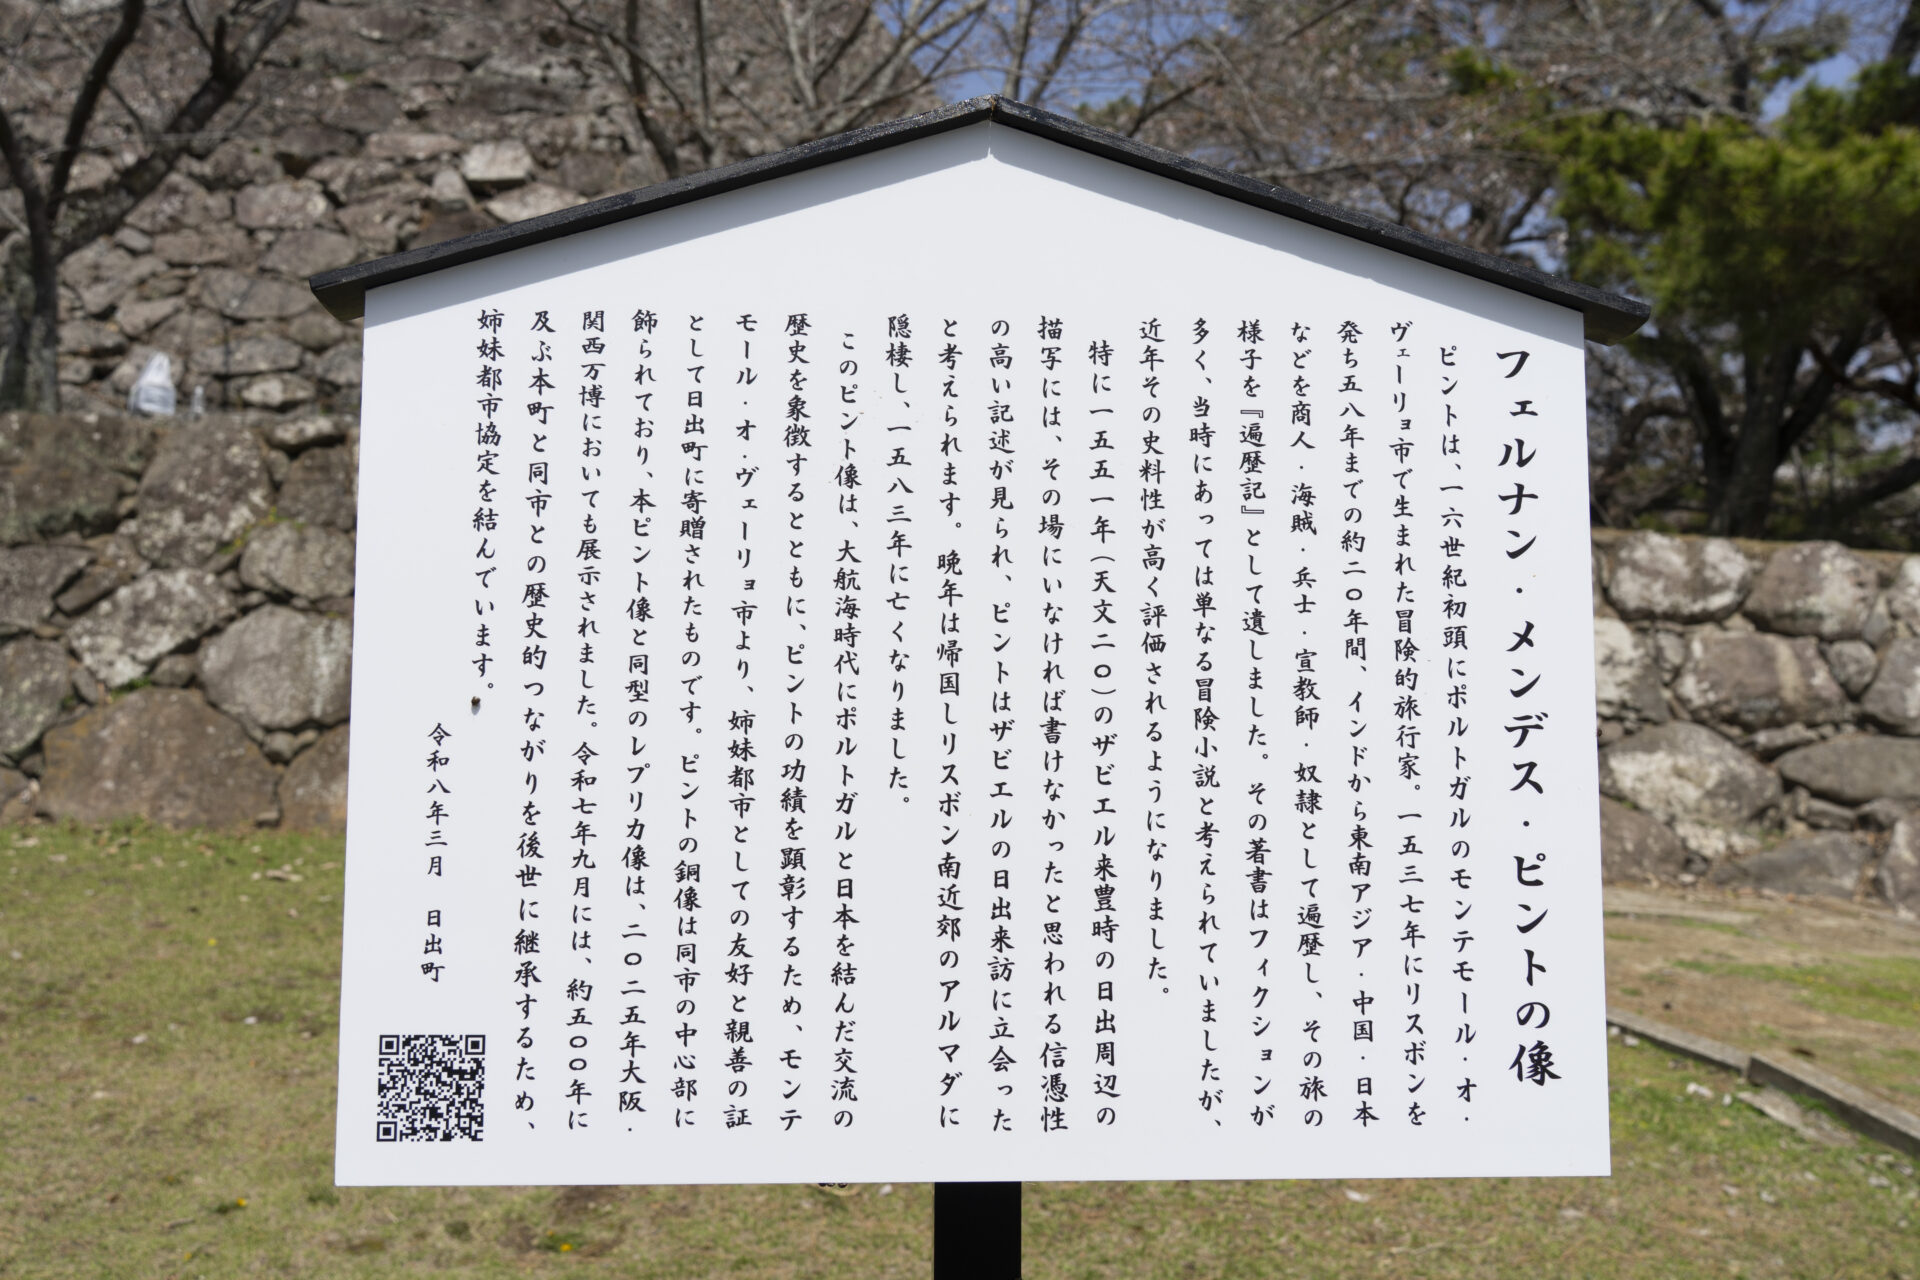 フェルナン・メンデス・ピントの像
ピントは、一六世紀初頭にポルトガルのモンテモール・オ・
ヴェーリョ市で生まれた冒険的旅行家。一五三七年にリスボンを
発ち五八年までの約二〇年間、インドから東南アジア・中国・日本
などを商人・海賊・兵士・宣教師・奴隷として遍歴し、その旅の
様子を『遍歴記』として遺しました。その著書はフィクションが
多く、当時にあっては単なる冒険小説と考えられていましたが、
近年その史料性が高く評価されるようになりました。
特に一五五一年（天文二〇）のザビエル来豊時の日出周辺の
描写には、その場にいなければ書けなかったと思われる信憑性
の高い記述が見られ、ピントはザビエルの日出来訪に立会った
と考えられます。晩年は帰国しリスボン南近郊のアルマダに
隠棲し、一五八三年に亡くなりました。
このピント像は、大航海時代にポルトガルと日本を結んだ交流の
歴史を象徴するとともに、ピントの功績を顕彰するため、モンテ
モール・オ・ヴェーリョ市より、姉妹都市としての友好と親善の証
として日出町に寄贈されたものです。ピントの銅像は同市の中心部に
飾られており、本ピント像と同型のレプリカ像は、二〇二五年大阪・
関西万博においても展示されました。令和七年九月には、約五〇〇年に
及ぶ本町と同市との歴史的つながりを後世に継承するため、
姉妹都市協定を結んでいます。
令和八年三月　日出町